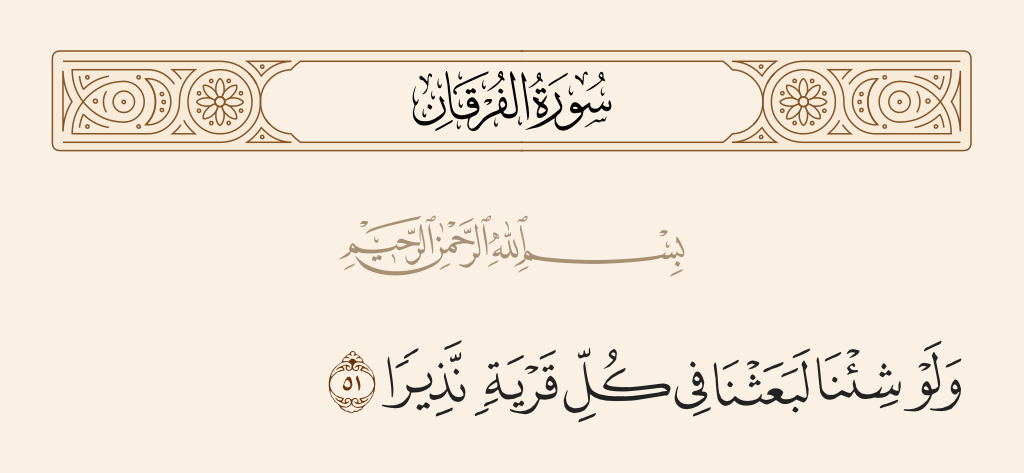 سُورَةُ الفُرْقَانِ
بِسْمِ ٱللَّهِ ٱلرَّحْمَٰنِ ٱلرَّحِيمِ
وَلَوْ شِئْنَا لَبَعَثْنَا فِى كُلِّ قَرْيَةٍ نَّذِيرًا ٥١